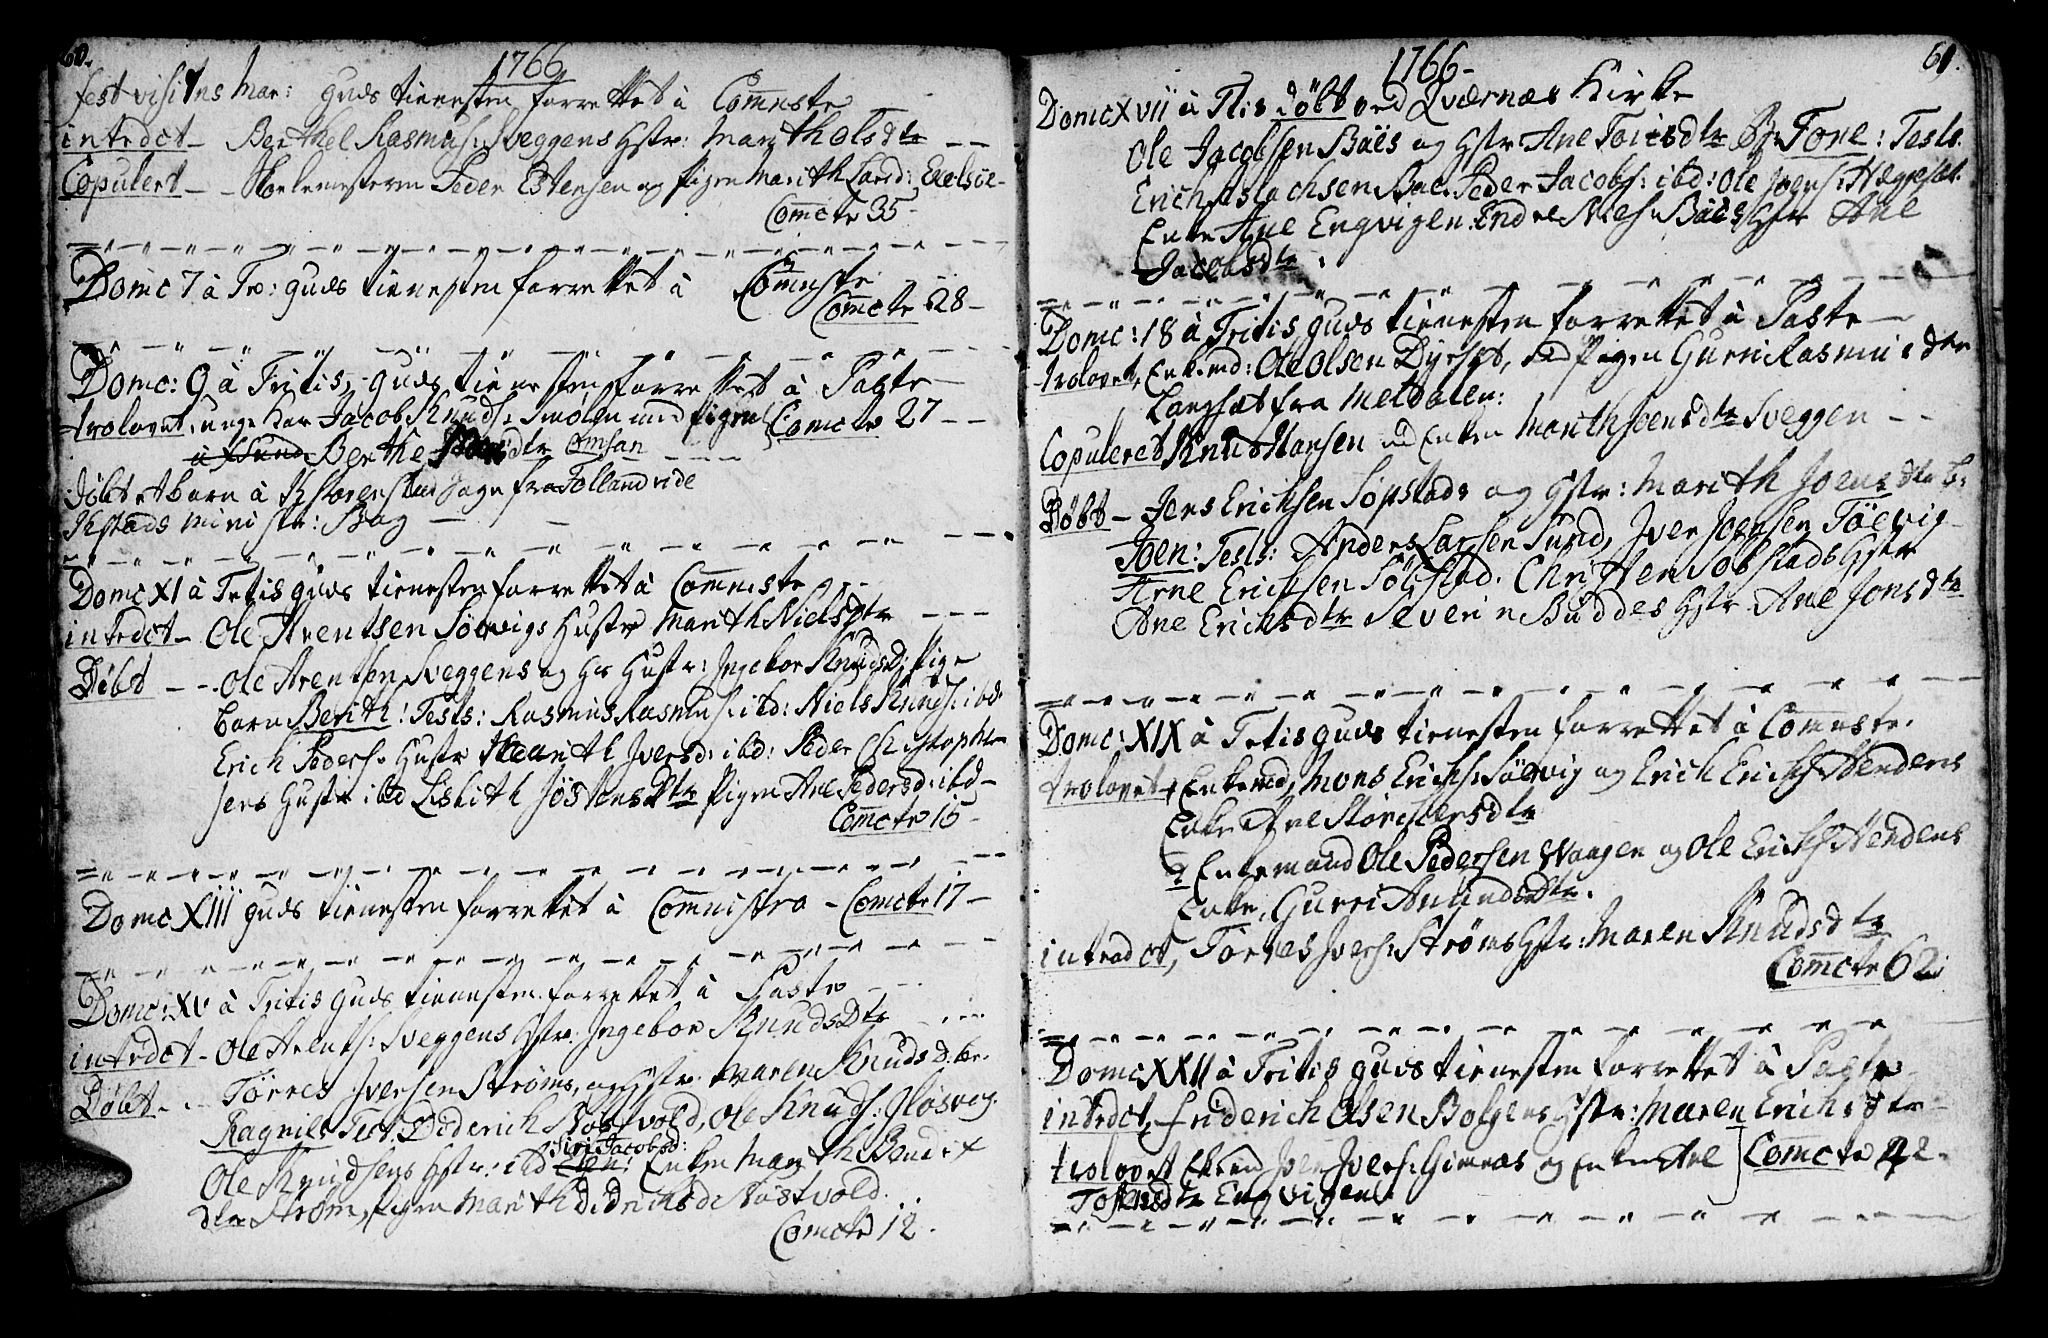 60.
1766
fest visitns Mar: Guds tienesten forrettet å Comnste
intrdct - Berthel Rasmus: Sveggens Hstr: Marith olsdtr
Copulert - - Skolemesteren Peder Estensen og Pigen Marith Land:
Comcte 35 -
Domc 7 à Tr: Guds tienesten forrettet å Comnste
Comcte 28 -
Domc: 9 à Tritis, Guds tienesten forrettet å Paste
trolovet, unge Kar Jacob Knuds: Smølen med Pigen Comcte 27 - -
Berthe dtr
døbt et barn å fra
ministr: Bog
Domc XI à Tritis Guds tienesten forrettet å Comnste
intrdct - Ole Arentsen Sølvigs Hustr Marith Nielsdtr
Døbt - - Ole Arentsen Sveggens og Hs Hustr: Ingebor Knudsd: Pige
barn Berith: Tests: Rasmus Rasmus: ibd: Niels Knuds: ibd
Erich Peders: Hustr Marith Iversd: ibd: Peder Christoph
sens Hustr ibd Lisbith Jöstensdtr Pigen Ane Pedersd: ibd -
Comcte 15 -
Domc XIII Guds tienesten forrettet å Comnistra - Comcte 17 -
Domc: XV à Tritis Guds tienesten forrettet å Paste
intrdct - Ole Arents: Sveggens Hstr. Ingebor Knudsdtr
Døbt - - Tørres Iversen Strøms, og Hstr: Maren Knudsd. br:
Ragnild Test: Diderich Nøstvold, Ole Knuds: Gløsvog
Siri Jacobsd:
Ole Knudsens Hstr: ibd Enken Marith Bendix
dtr Strøm, Pigen Marith Didrichsd: Nøstvold.
Comcte 12.
1766 -
61.
Domc XVII à Ttis døbt ved Qværnæs Kirke
Ole Jacobsen Baës og Hstr Ane Toresdtr B: Tone: Tests.
Erich Aslachsen Bae. Peder Jacobs: ibd: Ole Joens: Hæggeset.
Enke Ane Engvigen. Endre Niels: Baës Hstr Ane
Jacobsdtr.
Domc: 18 à Tritis Guds tienesten forrettet å Paste
trolovet, Enkmd: Ole Olsen Dyrset, med Pigen Guri Rasmusdtr
Langset fra Meldalen:
Copuleret Knud Hansen md Enken Marith Joensdtr Sveggen - -
Døbt - Jens Erichsen Söpstads og Hstr: Marith Joensdtr b:
Joen: Tests: Anders Larsen Sund, Iver Joensen Töevig
Arne Erichsen Sölpstad. Christen Sobstads Hstr
Ane Erichsdtr Severin Buddes Hstr Ane Jonsdtr
Domc: XIX à Tritis Guds tienesten forrettet å Comnste.
trolovet, Enkemd, Mons Erichs: Sölvig og Erich Erichs: Hendens
Enke Ane Størchersdtr
2 Enkemand Ole Pedersen Waagen og Ole Erichs: Hendens
Enke, Gurri Amundsdtr.
introdct, Törres Ivers: Strøms Hstr: Maren Knudsdtr
Comcte 62
Domc XXII à Tritis Guds tienesten forrettet å Paste
intrdct, Friderich Olsen Bolgens Hstr: Maren Erichsdtr
trolovet Enkmd Iver Ivers: Gimnæs og Enken Ane Comcte 42 -
dtr Engvigen.